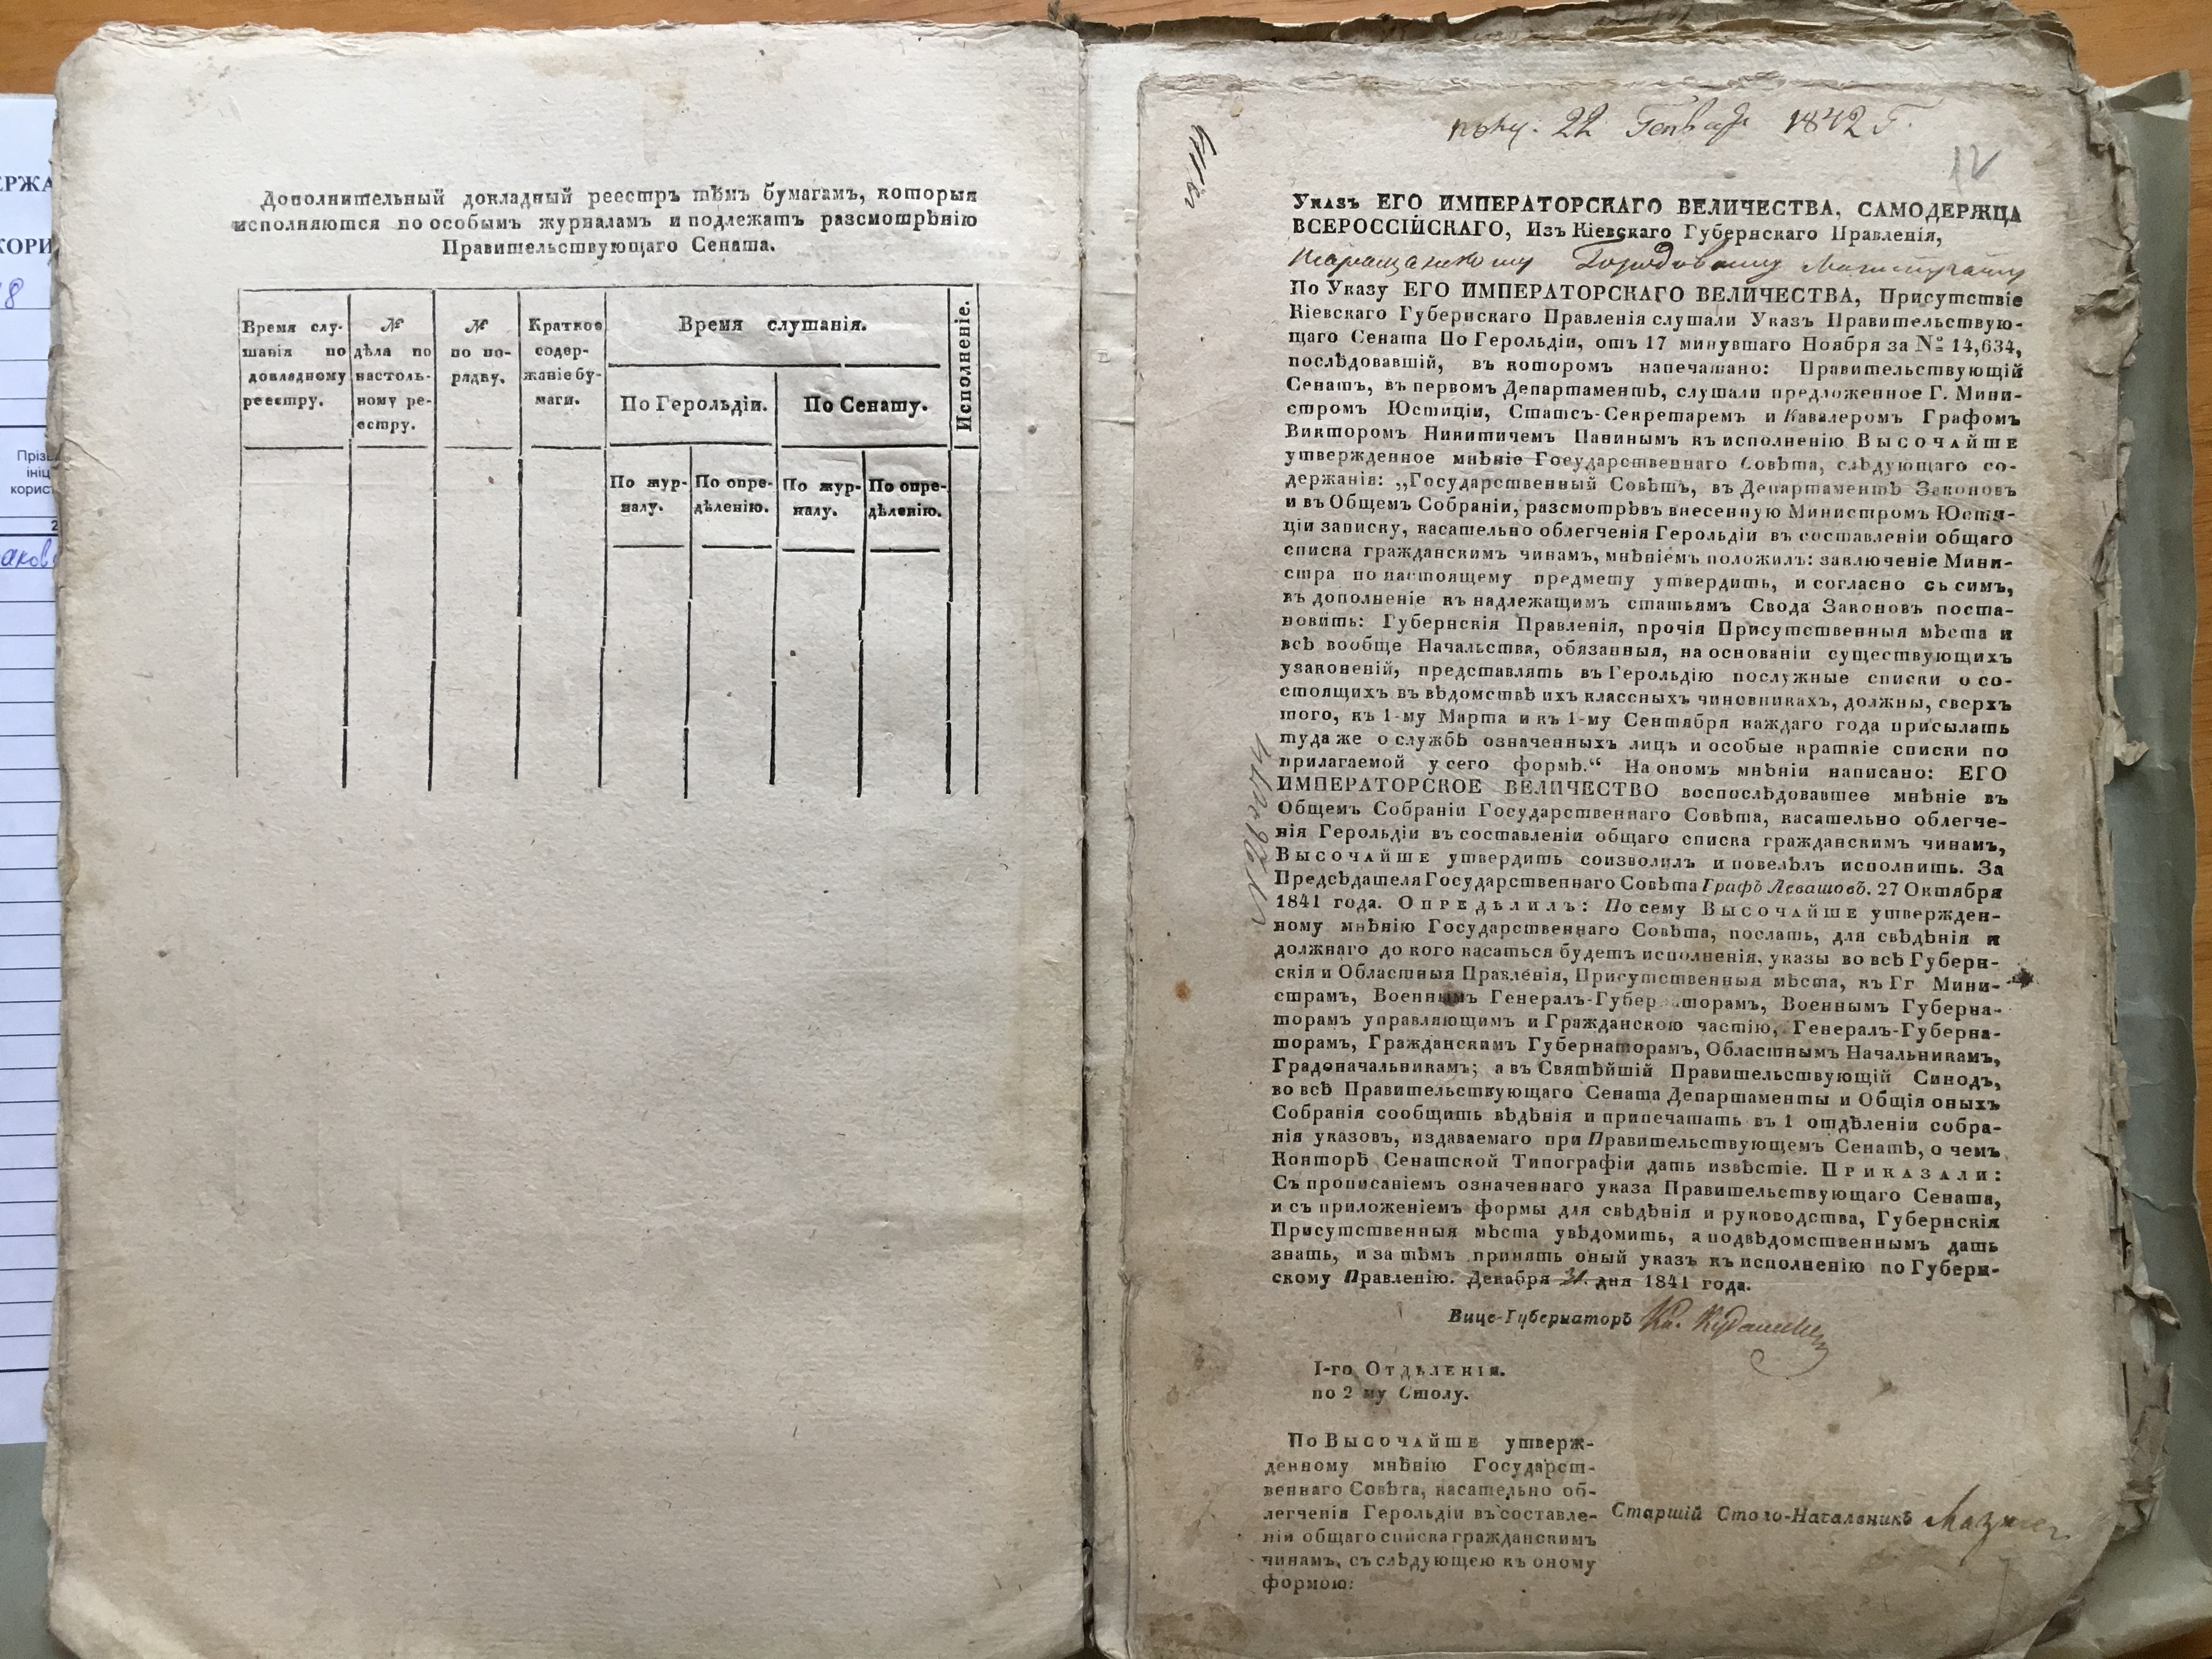 ЕРЖА
КОРИ
8
Прізв
ініц
корист
2
аков
Дополнительный докладный реестръ тѣмъ бумагамъ, которыя
исполняются по особымъ журналамъ и подлежатъ разсмотрѣнію
Правительствующаго Сената.
Время слу-
шанія по
докладному
реестру.
№
дѣла по
настоль-
ному ре-
естру.
№
по по-
рядку.
Краткое
содер-
жаніе бу-
маги.
Время слушанія.
По Герольдіи.
По Сенату.
По жур-
налу.
По опре-
дѣленію.
По жур-
налу.
По опре-
дѣленію.
Исполненіе.
22 Генваря 1842 г.
12
Указъ ЕГО ИМПЕРАТОРСКАГО ВЕЛИЧЕСТВА, САМОДЕРЖЦА
ВСЕРОССІЙСКАГО, Изъ Кіевскаго Губернскаго Правленія,
Таращанскому Городовому Магистрату
По Указу ЕГО ИМПЕРАТОРСКАГО ВЕЛИЧЕСТВА, Присутствіе
Кіевскаго Губернскаго Правленія слушали Указъ Правительствую-
щаго Сената По Герольдіи, отъ 17 минувшаго Ноября за № 14,634,
послѣдовавшій, въ которомъ напечатано: Правительствующій
Сенатъ, въ первомъ Департаментѣ, слушали предложенное Г. Мини-
стромъ Юстиціи, Статсъ-Секретаремъ и Кавалеромъ Графомъ
Викторомъ Никитичемъ Панинымъ къ исполненію ВЫСОЧАЙШЕ
утвержденное мнѣніе Государственнаго Совѣта, слѣдующаго со-
держанія: „Государственный Совѣтъ, въ Департаментѣ Законовъ
и въ Общемъ Собраніи, разсмотрѣвъ внесенную Министромъ Юсти-
ціи записку, касательно облегченія Герольдіи въ составленіи общаго
списка гражданскимъ чинамъ, мнѣніемъ положилъ: заключеніе Мини-
стра по настоящему предмету утвердить, и согласно съ симъ,
въ дополненіе къ надлежащимъ статьямъ Свода Законовъ поста-
новить: Губернскія Правленія, прочія Присутственныя мѣста и
всѣ вообще Начальства, обязанныя, на основаніи существующихъ
узаконеній, представлять въ Герольдію послужные списки о со-
стоящихъ въ вѣдомствѣ ихъ классныхъ чиновникахъ, должны, сверхъ
того, къ 1-му Марта и къ 1-му Сентября каждаго года присылать
туда же о службѣ означенныхъ лицъ и особые краткіе списки по
прилагаемой у сего формѣ.“ На ономъ мнѣніи написано: ЕГО
ИМПЕРАТОРСКОЕ ВЕЛИЧЕСТВО воспослѣдовавшее мнѣніе въ
Общемъ Собраніи Государственнаго Совѣта, касательно облегче-
нія Герольдіи въ составленіи общаго списка гражданскимъ чинамъ,
ВЫСОЧАЙШЕ утвердить соизволилъ и повелѣлъ исполнить. За
Предсѣдателя Государственнаго Совѣта Графъ Левашовъ. 27 Октября
1841 года. ОПРЕДѢЛИЛЪ: По сему ВЫСОЧАЙШЕ утвержден-
ному мнѣнію Государственнаго Совѣта, послать, для свѣдѣнія и
должнаго до кого касаться будетъ исполненія, указы во всѣ Губерн-
скія и Областныя Правленія, Присутственныя мѣста, къ Гг Мини-
страмъ, Военнымъ Генералъ-Губернаторамъ, Военнымъ Губерна-
торамъ управляющимъ и Гражданскою частію, Генералъ-Губерна-
торамъ, Гражданскимъ Губернаторамъ, Областнымъ Начальникамъ,
Градоначальникамъ; а въ Святѣйшій Правительствующій Синодъ,
во всѣ Правительствующаго Сената Департаменты и Общія оныхъ
Собранія сообщить вѣдѣнія и припечатать въ 1 отдѣленіи собра-
нія указовъ, издаваемаго при Правительствующемъ Сенатѣ, о чемъ
Конторѣ Сенатской Типографіи дать извѣстіе. ПРИКАЗАЛИ:
Съ прописаніемъ означеннаго указа Правительствующаго Сената,
и съ приложеніемъ формы для свѣдѣнія и руководства, Губернскія
Присутственныя мѣста увѣдомить, а подвѣдомственнымъ дать
знать, и за тѣмъ принять оный указъ къ исполненію по Губерн-
скому Правленію. Декабря 31 дня 1841 года.
Вице-Губернаторъ Кн. Кудашевъ
I-го ОТДѢЛЕНІЯ.
по 2 му Столу.
По ВЫСОЧАЙШЕ утверж-
денному мнѣнію Государст-
веннаго Совѣта, касательно об-
легченія Герольдіи въ составле-
ніи общаго списка гражданскимъ
чинамъ, съ слѣдующею къ оному
формою:
Старшій Столо-Начальникъ